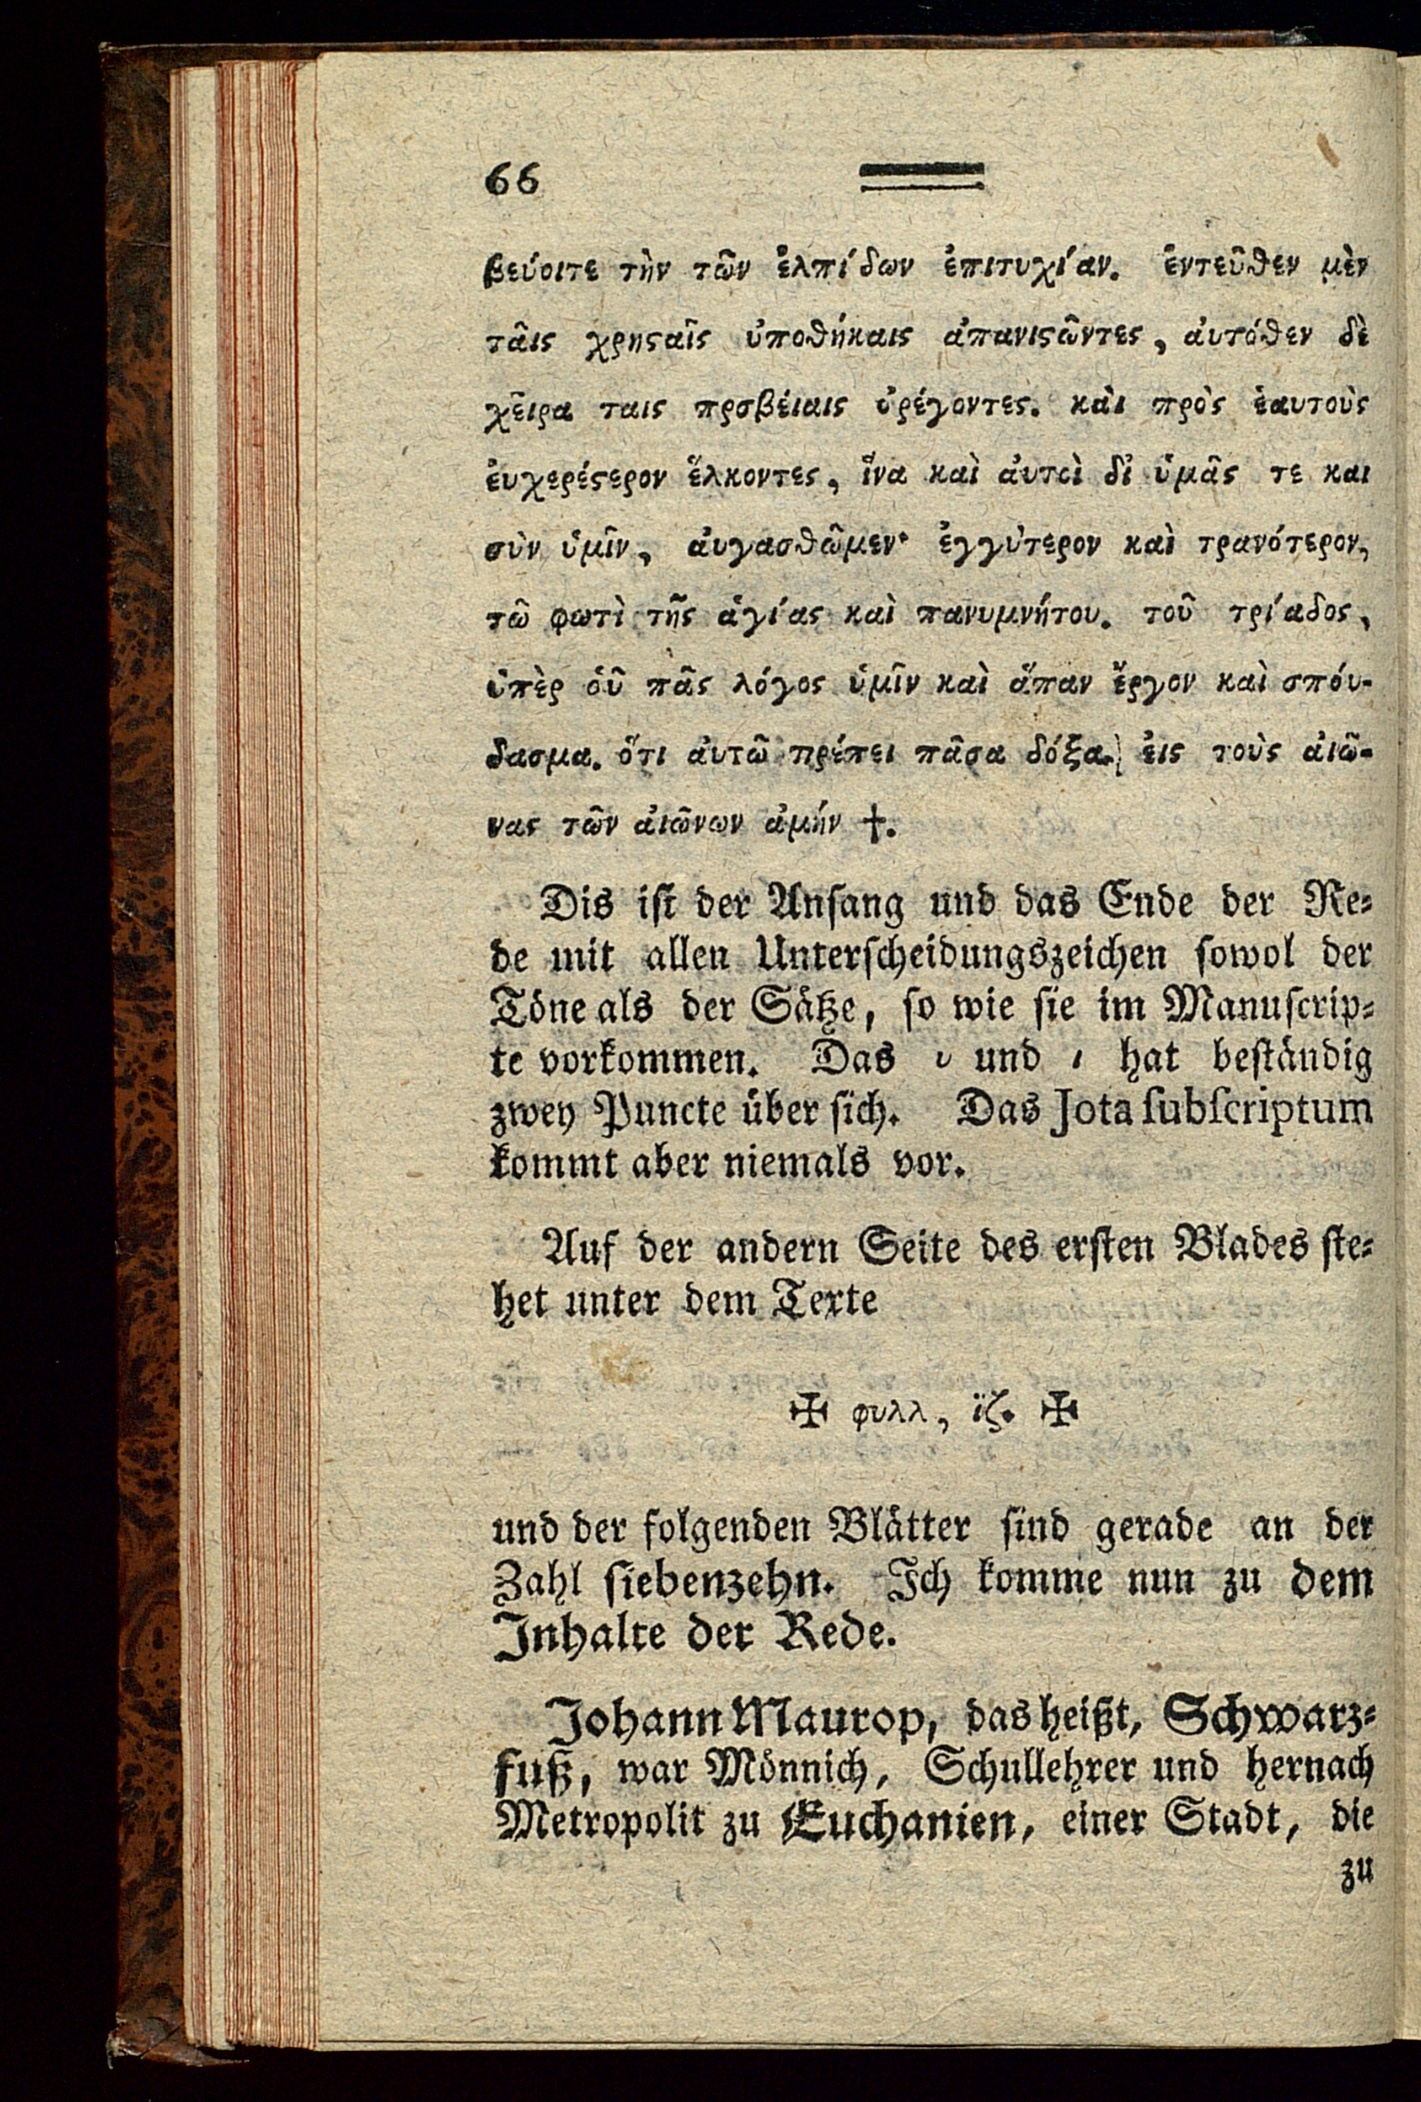 66
βεύοιτε τὴν τῶν ἐλπίδων ἐπιτυχίαν. ἐντεῦθεν μὲν
τᾶις χρηϛαῖς ὑποθήκαις ἀπανιϛῶντες, ἀυτόθεν δὲ
χεῖρα ταις πρσβέιαις ὀρέγοντες. κὰι πρὸς ἑαυτοὺς
ἐυχερέϛερον ἕλκοντες, ἵνα καὶ ἀυτοὶ δἰ ὑμᾶς τε και
σὺν ὑμῖν, ἀυγασθῶμεν· ἐγγύτερον καὶ τρανότερον,
τῶ φωτὶ τῆς ἁγίας καὶ πανυμνήτου. τοῦ τρίαδος,
ὑπὲρ ὁῦ πᾶς λόγος ὑμῖν καὶ ἅπαν ἔργον καὶ σπόυ-
δασμα. ὅτι ἀυτῶ πρέπει πᾶσα δόξα. ἐις τοὺς ἀιῶ-
νας τῶν ἀιῶνων ἀμήν †.
Dis ist der Anfang und das Ende der Re-
de mit allen Unterscheidungszeichen sowol der
Töne als der Sätze, so wie sie im Manuscrip-
te vorkommen. Das υ und ι hat beständig
zwey Puncte über sich. Das Jota subscriptum
kommt aber niemals vor.
Auf der andern Seite des ersten Blades ste-
het unter dem Texte
✠ φυλλ, ϊζ. ✠
und der folgenden Blätter sind gerade an der
Zahl siebenzehn. Ich komme nun zu dem
Inhalte der Rede.
Johann Maurop, das heißt, Schwarz-
fuß, war Mönnich, Schullehrer und hernach
Metropolit zu Euchanien, einer Stadt, die
zu